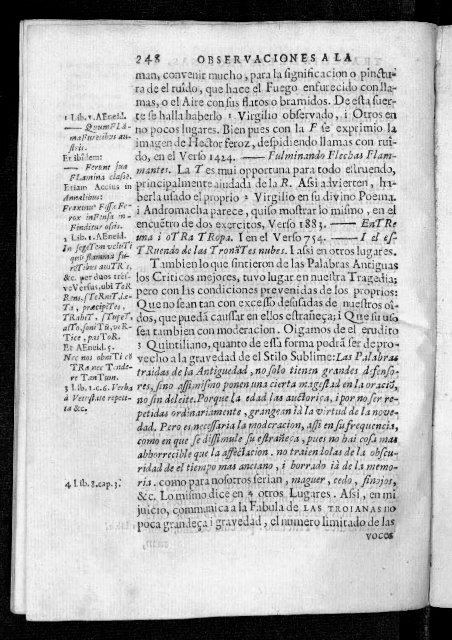 248 OBSERVACIONES A LA
man, convenir mucho, para la significacion o pinctu-
ra de el ruido, que hace el Fuego enfurecido con lla-
mas, o el Aire con sus flatos o bramidos. De esta suer-
te se halla haberlo 1 Virgilio observado, i Otros en
no pocos lugares. Bien pues con la F se exprimio la
imagen de Hector feroz, despidiendo llamas con rui-
do, en el Verso 1424. —— Fulminando Flechas Flam-
mantes. La T es mui opportuna para todo estruendo,
principalmente aiudada de la R. Assi advierten, ha-
berla usado el proprio 2 Virgilio en su divino Poema.
i Andromacha parece, quiso mostrar lo mismo, en el
encuẽtro de dos exercitos, Verso 1883. —— EnTRe
una i oTRA TRopa. I en el Verso 754. —— I el es-
TRuendo de las TronãTes nubes. I assi en otros lugares.
Tambien lo que sintieron de las Palabras Antiguas
los Criticos mejores, tuvo lugar en nuestra Tragedia;
pero con las condiciones prevenidas de los proprios:
Que no sean tan con excesso desusadas de nuestros oi-
dos, que puedã caussar en ellos estrañeça; i Que su uso
sea tambien con moderacion. Oigamos de el erudito
3 Quintiliano, quanto de essa forma podrã ser de pro-
vecho a la gravedad de el Stilo Sublime: Las Palabras
traidas de la Antiguedad, no solo tienen grandes defenso-
res, sino assimismo ponen una cierta magestad en la oraciõ,
no sin deleite. Porque la edad las auctoriça, i por no ser re-
petidas ordinariamente, grangean ià la virtud de la nove-
dad. Pero es necessaria la moderacion, assi en su frequencia,
como en que se dissimule su estrañeça, pues no hai cosa mas
abhorrecible que la affectacion. no traiendolas de la obscu-
ridad de el tiempo mas anciano, i borrado ià de la memo-
ria. como para nosotros serian, maguer, cedo, finojos,
&c. Lo mismo dice en 4 otros Lugares. Assi, en mi
juicio, communica a la Fabula de LAS TROIANAS no
poca grandeça i gravedad, el numero limitado de las
voces
1 Lib. 1. AEneid.
—— QuumFLã-
maFurentibus au-
stris.
Et ibidem:
—— Ferunt sua
FLamina classe.
Etiam Accius in
Annalibus:
Fraxinus Fissa Fe-
rox inFensa in-
Finditur ossis.
2 Lib. 1. AEneid.
In segeTem velutT
quũ flamma fu-
renTibus ausTRis,
&c. per duos tres-
ve Versus, ubi ToR
Rens, sTeRniT, læ-
Ta, præcipiTes,
TRahiT, sTupeT,
alTo, soniTũ, veR-
Tice, pasToR.
Et AEneid. 5.
Nec nos obniTi cõ
TRa nec Tende-
re TanTum.
3 Lib. 1. c. 6. Verba
à Vetustate repeti-
ta &c.
4 Lib. 8. cap. 3.